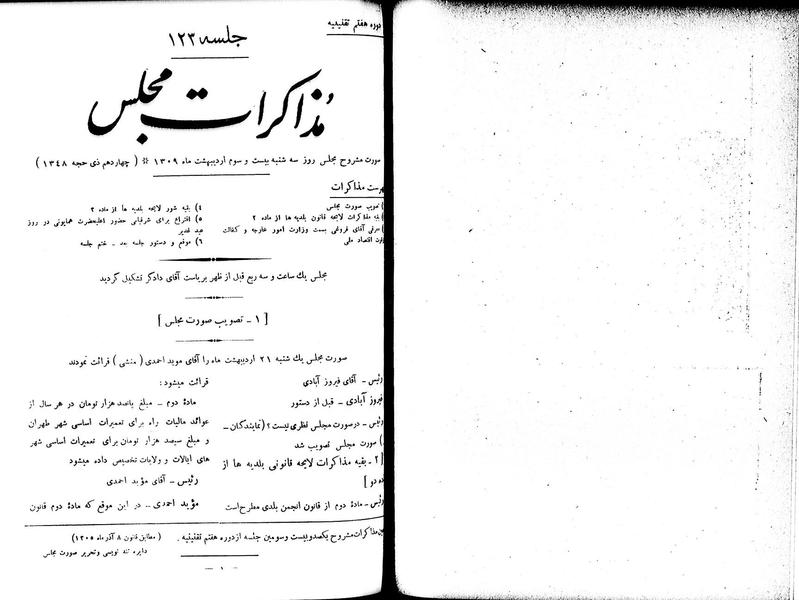 دوره هفتم تقنینیه
جلسه ۱۲۳
مذاکرات مجلس
صورت مشروح مجلس روز سه شنبه بیست و سوم اردیبهشت ماه ۱۳۰۹ * ( چهاردهم ذی حجه ۱۳۴۸ )
فهرست مذاکرات
) تصویب صورت مجلس
) بقیه مذاکرات لایحه قانون بلدیه ها از ماده ۲
) معرفی آقای فروغی بسمت وزارت امور خارجه و کفالت
وزارت اقتصاد ملی
۴) بقیه شور لایحه بلدیه ها از ماده ۲
۵) اقتراع برای شرفیابی حضور اعلیحضرت همایونی در روز
عید غدیر
۶) موقع و دستور جلسه بعد ـ ختم جلسه
مجلس یك ساعت و سه ربع قبل از ظهر بریاست آقای دادگر تشکیل گردید
[ ۱ ـ تصویب صورت مجلس ]
صورت مجلس یك شنبه ۲۱ اردیبهشت ماه را آقای موید احمدی ( منشی ) قرائت نمودند
رئیس ـ آقای فیروز آبادی
فیروز آبادی ـ قبل از دستور
رئیس ـ در صورت مجلس نظری نیست ؟ (نمایندگان ـ
) صورت مجلس تصویب شد
[ ۲ ـ بقیه مذاکرات لایحه قانونی بلدیه ها از
ماده دو ]
رئیس ـ ماده دوم از قانون انجمن بلدی مطرح است
قرائت میشود :
مادهٔ دوم ـ مبلغ پانصد هزار تومان در هر سال از
عوائد مالیات راه برای تعمیرات اساسی شهر طهران
و مبلغ سیصد هزار تومان برای تعمیرات اساسی شهر
های ایالات و ولایات تخصیص داده میشود
رئیس ـ آقای مؤید احمدی
مؤید احمدی ـ در این موقع که مادهٔ دوم قانون
عین مذاکرات مشروح یکصد و بیست و سومین جلسه از دوره هفتم تقنینیه . ( مطابق قانون ۸ آذر ماه ۱۳۰۵)
دایره تند نویسی و تحریر صورت مجلس
ـ ۱ ـ